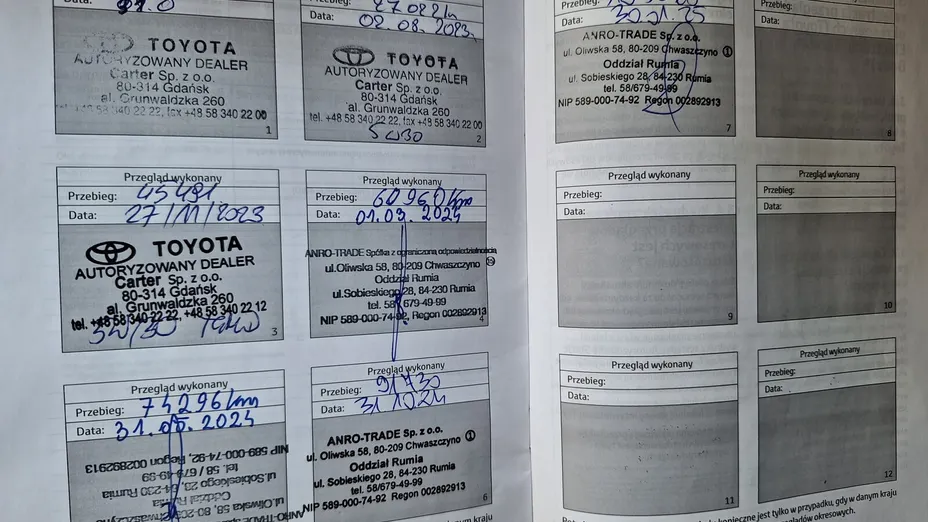 Data:
TOYOTA
AUTORYZOWANY DEALER
Carter Sp. z o.o.
80-314 Gdańsk
al. Grunwaldzka 260
tel. +48 58 340 22 22, fax +48 58 340 22 00
1
Przebieg: 27082 km
Data: 02.08.2023
TOYOTA
AUTORYZOWANY DEALER
Carter Sp. z o.o.
80-314 Gdańsk
al. Grunwaldzka 260
tel. +48 58 340 22 22, fax +48 58 340 22 00
5W30
2
Przegląd wykonany
Przebieg: 45491
Data: 27/11/2023
TOYOTA
AUTORYZOWANY DEALER
Carter Sp. z o.o.
80-314 Gdańsk
al. Grunwaldzka 260
tel. +48 58 340-22-22, +48 58 340 22 12
5W/30
3
Przegląd wykonany
Przebieg: 60960 km
Data: 01.03.2024
ANRO-TRADE Spółka z ograniczoną odpowiedzialnością
ul.Oliwska 58, 80-209 Chwaszczyno
Oddział Rumia
ul.Sobieskiego 28, 84-230 Rumia
tel. 58/679-49-99
NIP 589-000-74-92, Regon 002892913
4
Przegląd wykonany
Przebieg: 74296 km
Data: 2024
NIP 589-000-74-92, Regon 002892913
tel. 58 / 679-49-99
ul.Sobieskiego 28, 84-230 Rumia
Oddział Rumia
ul.Oliwska 58, 80-209 Chwaszczyno
Przegląd wykonany
Przebieg: 91730
Data: 31.10.24
ANRO-TRADE Sp. z o.o.
ul. Oliwska 58, 80-209 Chwaszczyno ①
Oddział Rumia
ul. Sobieskiego 28, 84-230 Rumia
tel. 58/679-49-99
NIP 589-000-74-92 Regon 002892913
6
Przebieg:
Data: 30.01.25
ANRO-TRADE Sp. z o.o.
ul. Oliwska 58, 80-209 Chwaszczyno ①
Oddział Rumia
ul. Sobieskiego 28, 84-230 Rumia
tel. 58/679-49-99
NIP 589-000-74-92 Regon 002892913
7
Data:
8
Przegląd wykonany
Przebieg:
Data:
9
Przegląd wykonany
Przebieg:
Data:
10
Przegląd wykonany
Przebieg:
Data:
11
Przegląd wykonany
Przebieg:
Data:
12
konieczne jest tylko w przypadku, gdy w danym kraju
okresowych.